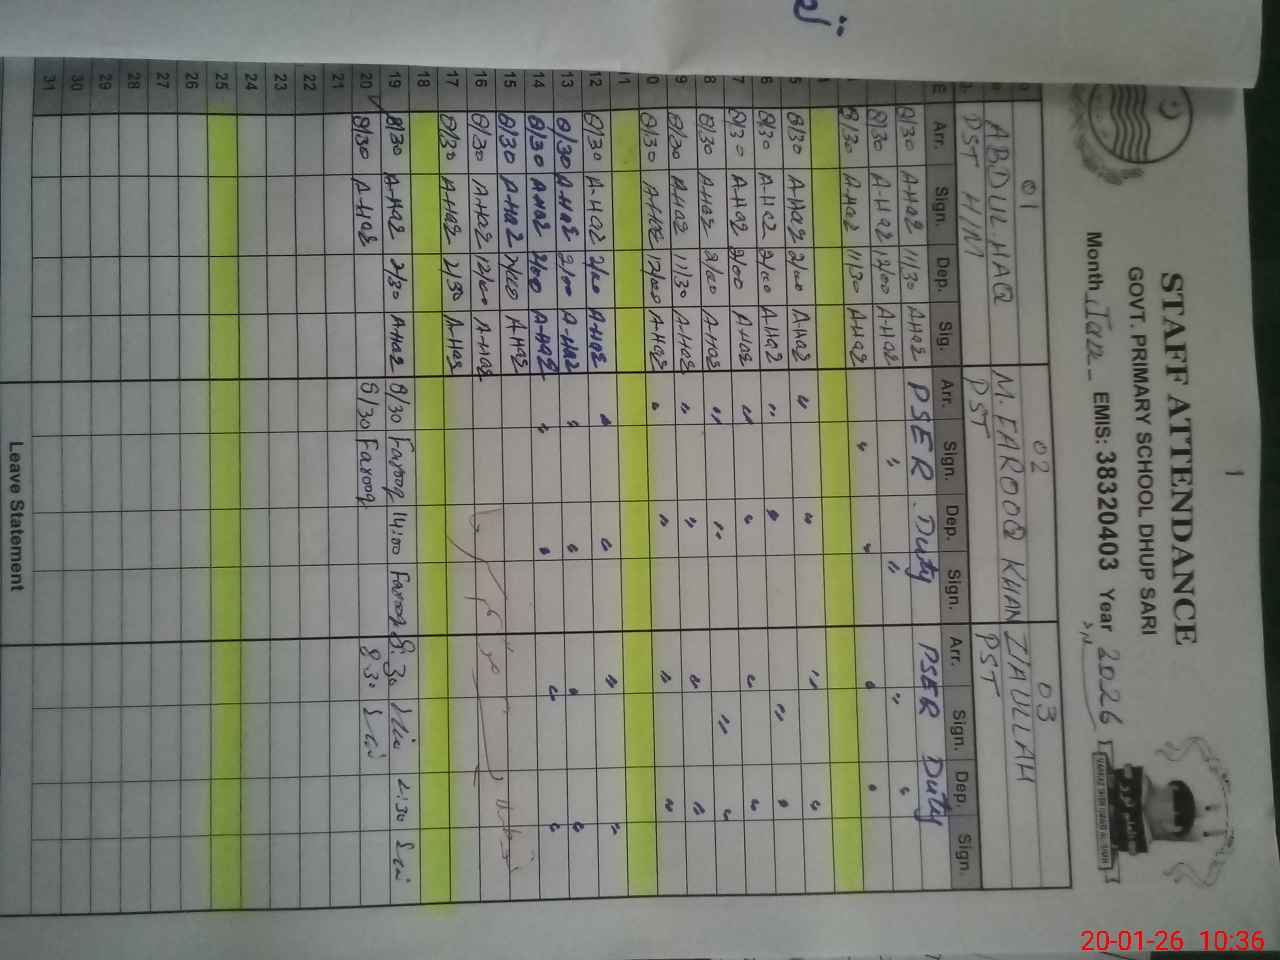 1
STAFF ATTENDANCE
GOVT. PRIMARY SCHOOL DHUP SARI
Month Jan- EMIS: 38320403 Year 2026
01 02 03
ABDUL HAQ M. FAROOQ KHAN ZIAULLAH
PST H/M PST PST
E Arr. Sign. Dep. Sig. Arr. Sign. Dep. Sign. Arr. Sign. Dep. Sign.
8/30 A.HAQ 11/30 A.HAQ PSER Duty PSER Duty
8/30 A-HAQ 12/00 A-HAQ " " " "
8/30 A-HAQ 11/30 A-HAQ " " " "
5 8/30 A-HAQ 2/00 A-HAQ " " " "
6 8/30 A-HAQ 2/00 A-HAQ " " " "
7 8/30 A-HAQ 2/00 A-HAQ " " " "
8 8/30 A-HAQ 2/00 A-HAQ " " " "
9 8/30 A-HAQ 11/30 A-HAQ " " " "
0 8/30 A-HAQ 12/00 A-HAQ " " " "
1
12 8/30 A-HAQ 2/00 A-HAQ " " " "
13 8/30 A-HAQ 2/00 A-HAQ " " " "
14 8/30 A-HAQ 2/00 A-HAQ " " " "
15 8/30 A-HAQ 2/00 A-HAQ
16 8/30 A-HAQ 12/00 A-HAQ
17 8/30 A-HAQ 2/30 A-HAQ
18
19 8/30 A-HAQ 2/30 A-HAQ 8/30 Farooq 14:00 Farooq 8:30 2:30
20 8/30 A-HAQ 8/30 Farooq 8:30
21
22
23
24
25
26
27
28
29
30
31
Leave Statement
20-01-26 10:36